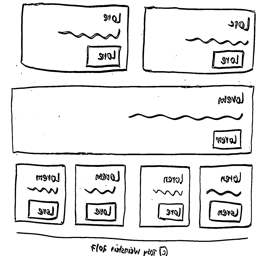 Lore Lore
Lore Lore
Lorem
Lorem
Lorem Loren Lorem Lorem
Loren Lore Lore Lore
(c) Weinstein 2017